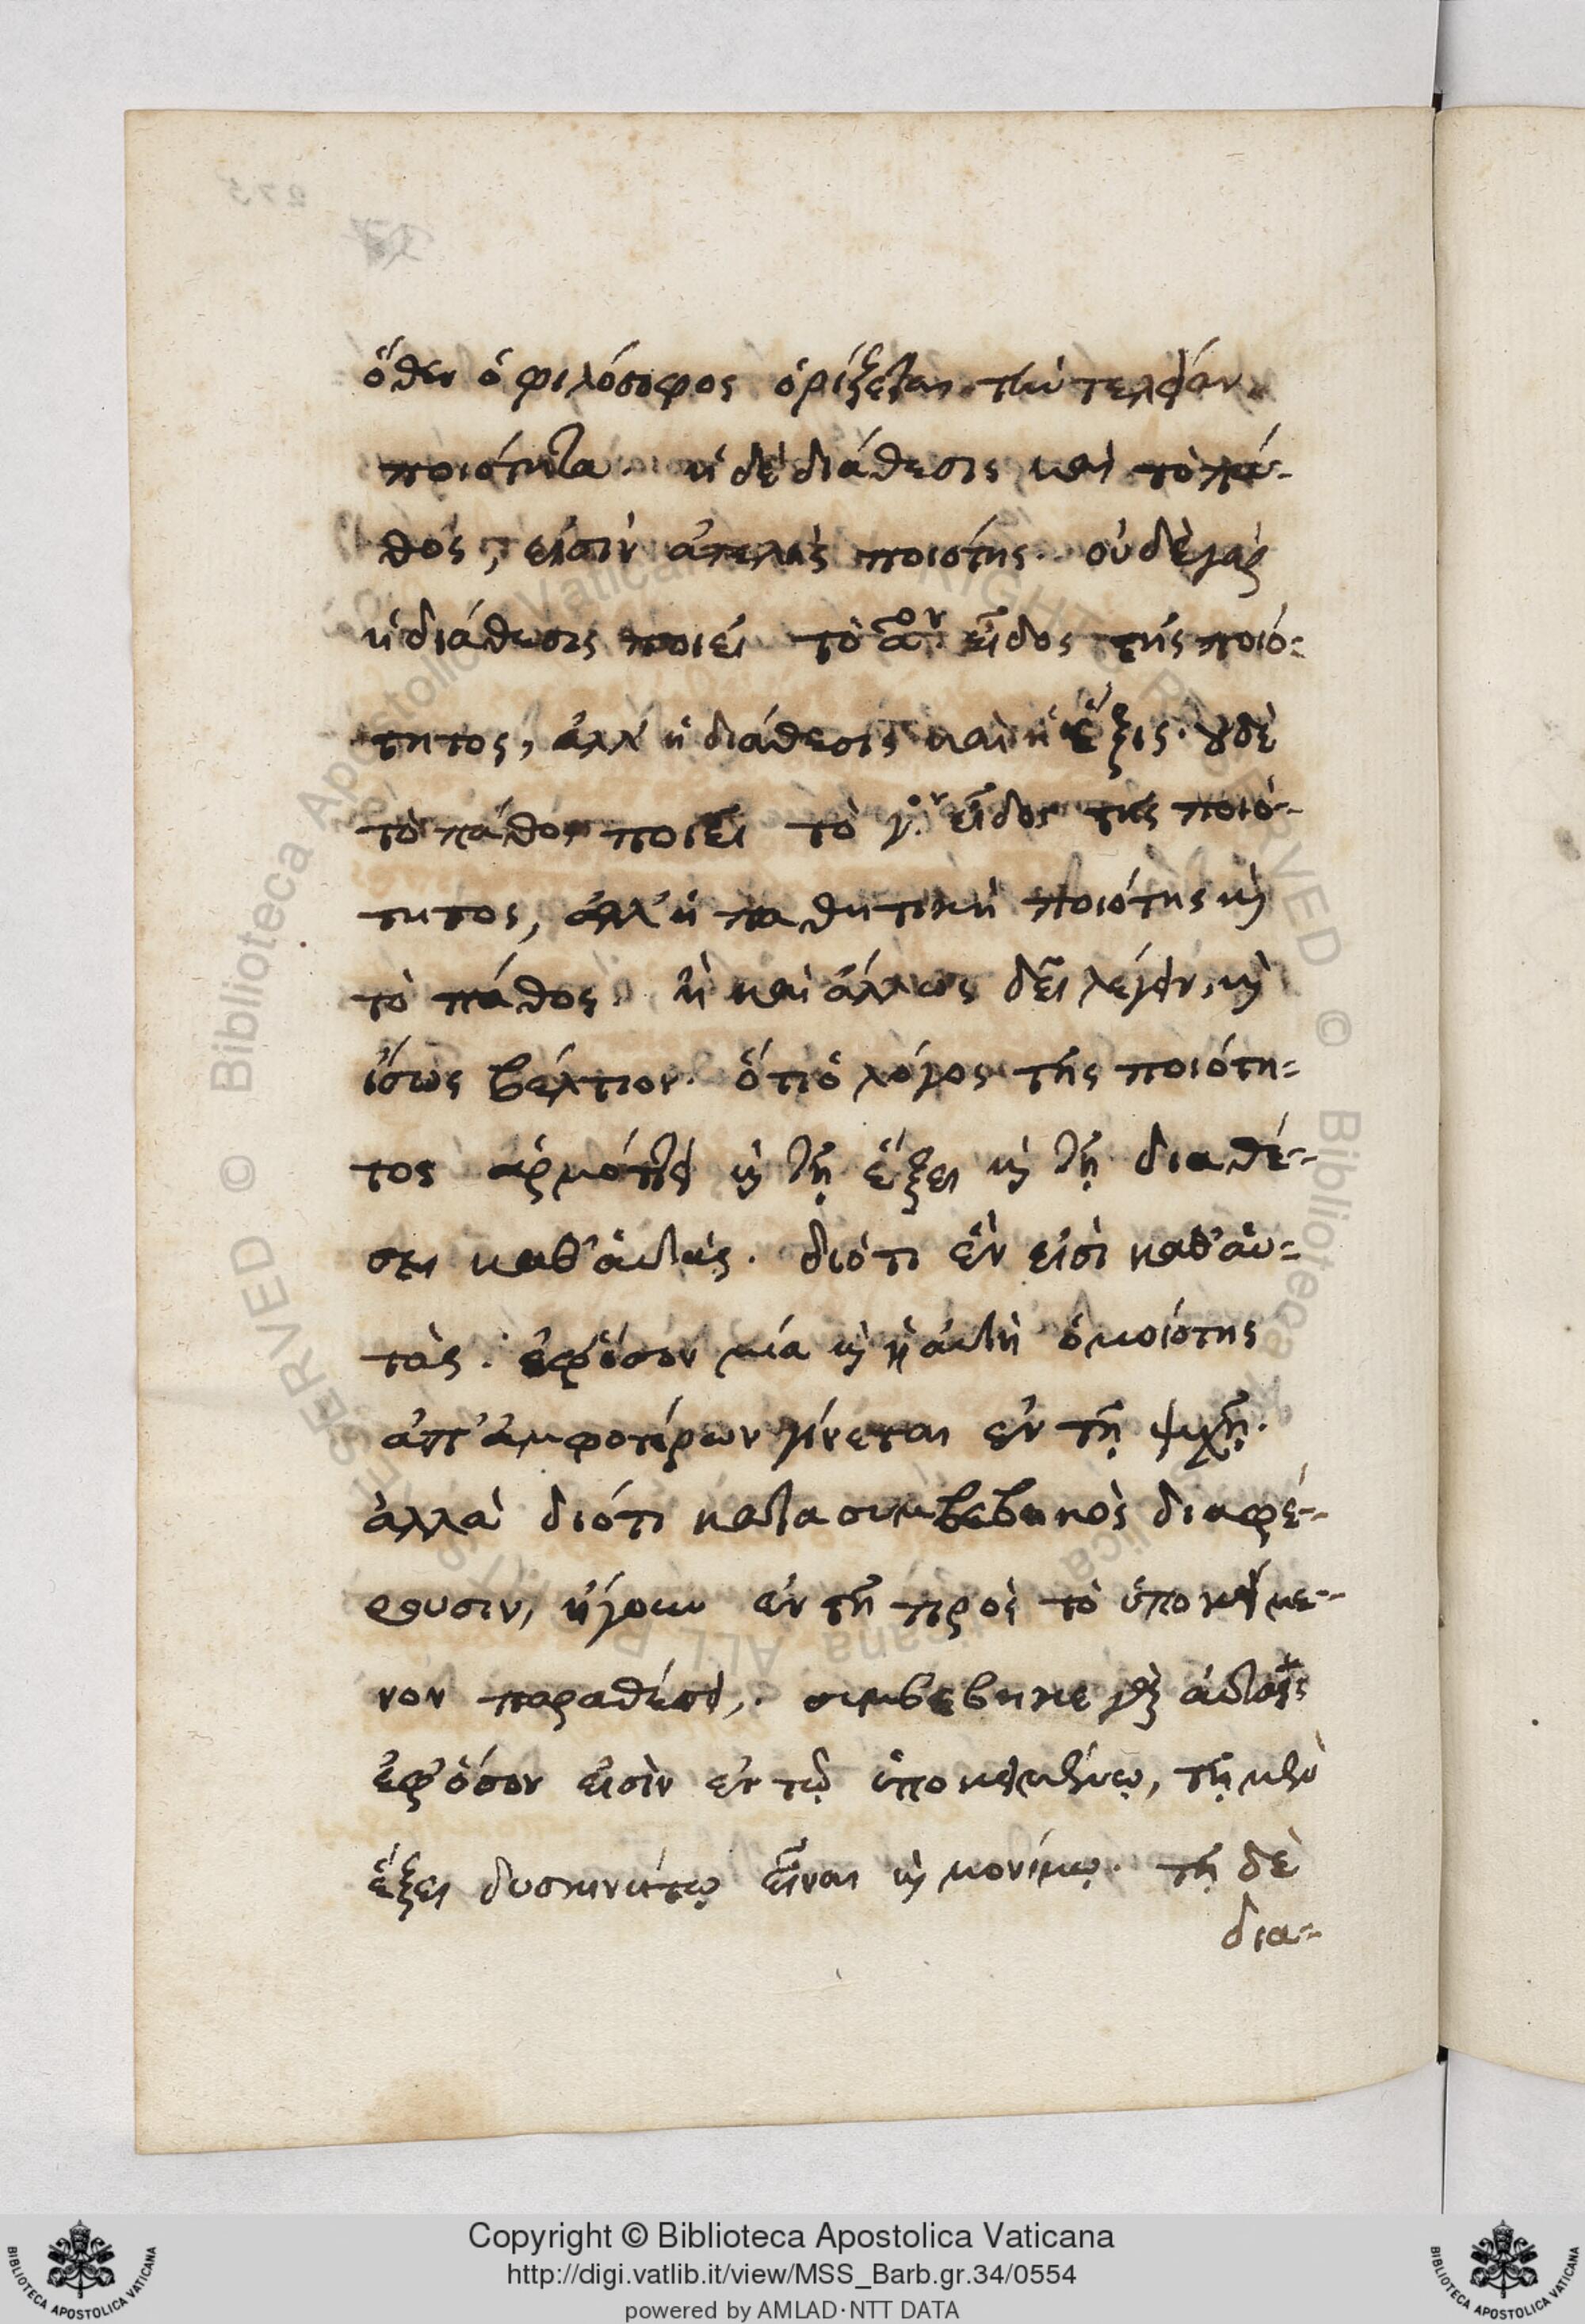 ὅθεν ὁ φιλόσοφος ὁρίζεται τὴν τελείαν
ποιότητα. ἡ δὲ διάθεσις καὶ τὸ πά-
θος, εἰσὶν ἀτελὴς ποιότης. οὐδὲ γὰρ
ἡ διάθεσις ποιεῖ τὸ αον εἶδος τῆς ποιό-
τητος, ἀλλ' ἡ διάθεσις καὶ ἡ ἕξις. οὐδὲ
τὸ πάθος ποιεῖ τὸ γον εἶδος τῆς ποιό-
τητος, ἀλλ' ἡ παθητικὴ ποιότης καὶ
τὸ πάθος. ἢ καὶ ἄλλως δεῖ λέγειν, καὶ
ἴσως βέλτιον. ὅτι ὁ λόγος τῆς ποιότη-
τος ἁρμόττει καὶ τῇ ἕξει καὶ τῇ διαθέ-
σει καθ' αὑτάς. διότι ἕν εἰσι καθ' αὑ-
τάς. ἐφ' ὅσον μία καὶ ἡ αὐτὴ ὁμοιότης
ἀπ' ἀμφοτέρων γίνεται ἐν τῇ ψυχῇ.
ἀλλὰ διότι κατα συμβεβηκὸς διαφέ-
ρουσιν, ἤγουν ἐν τῇ πρὸς τὸ ὑποκείμε-
νον παραθέσει. συμβέβηκε γὰρ αὐταῖς
ἐφ' ὅσον εἰσὶν ἐν τῷ ὑποκειμένῳ, τῇ μὲν
ἕξει δυσκινήτῳ εἶναι καὶ μονίμῳ. τῇ δὲ
δια-
Copyright © Biblioteca Apostolica Vaticana
http://digi.vatlib.it/view/MSS_Barb.gr.34/0554
powered by AMLAD·NTT DATA
BIBLIOTECA APOSTOLICA VATICANA
BIBLIOTECA APOSTOLICA VATICANA